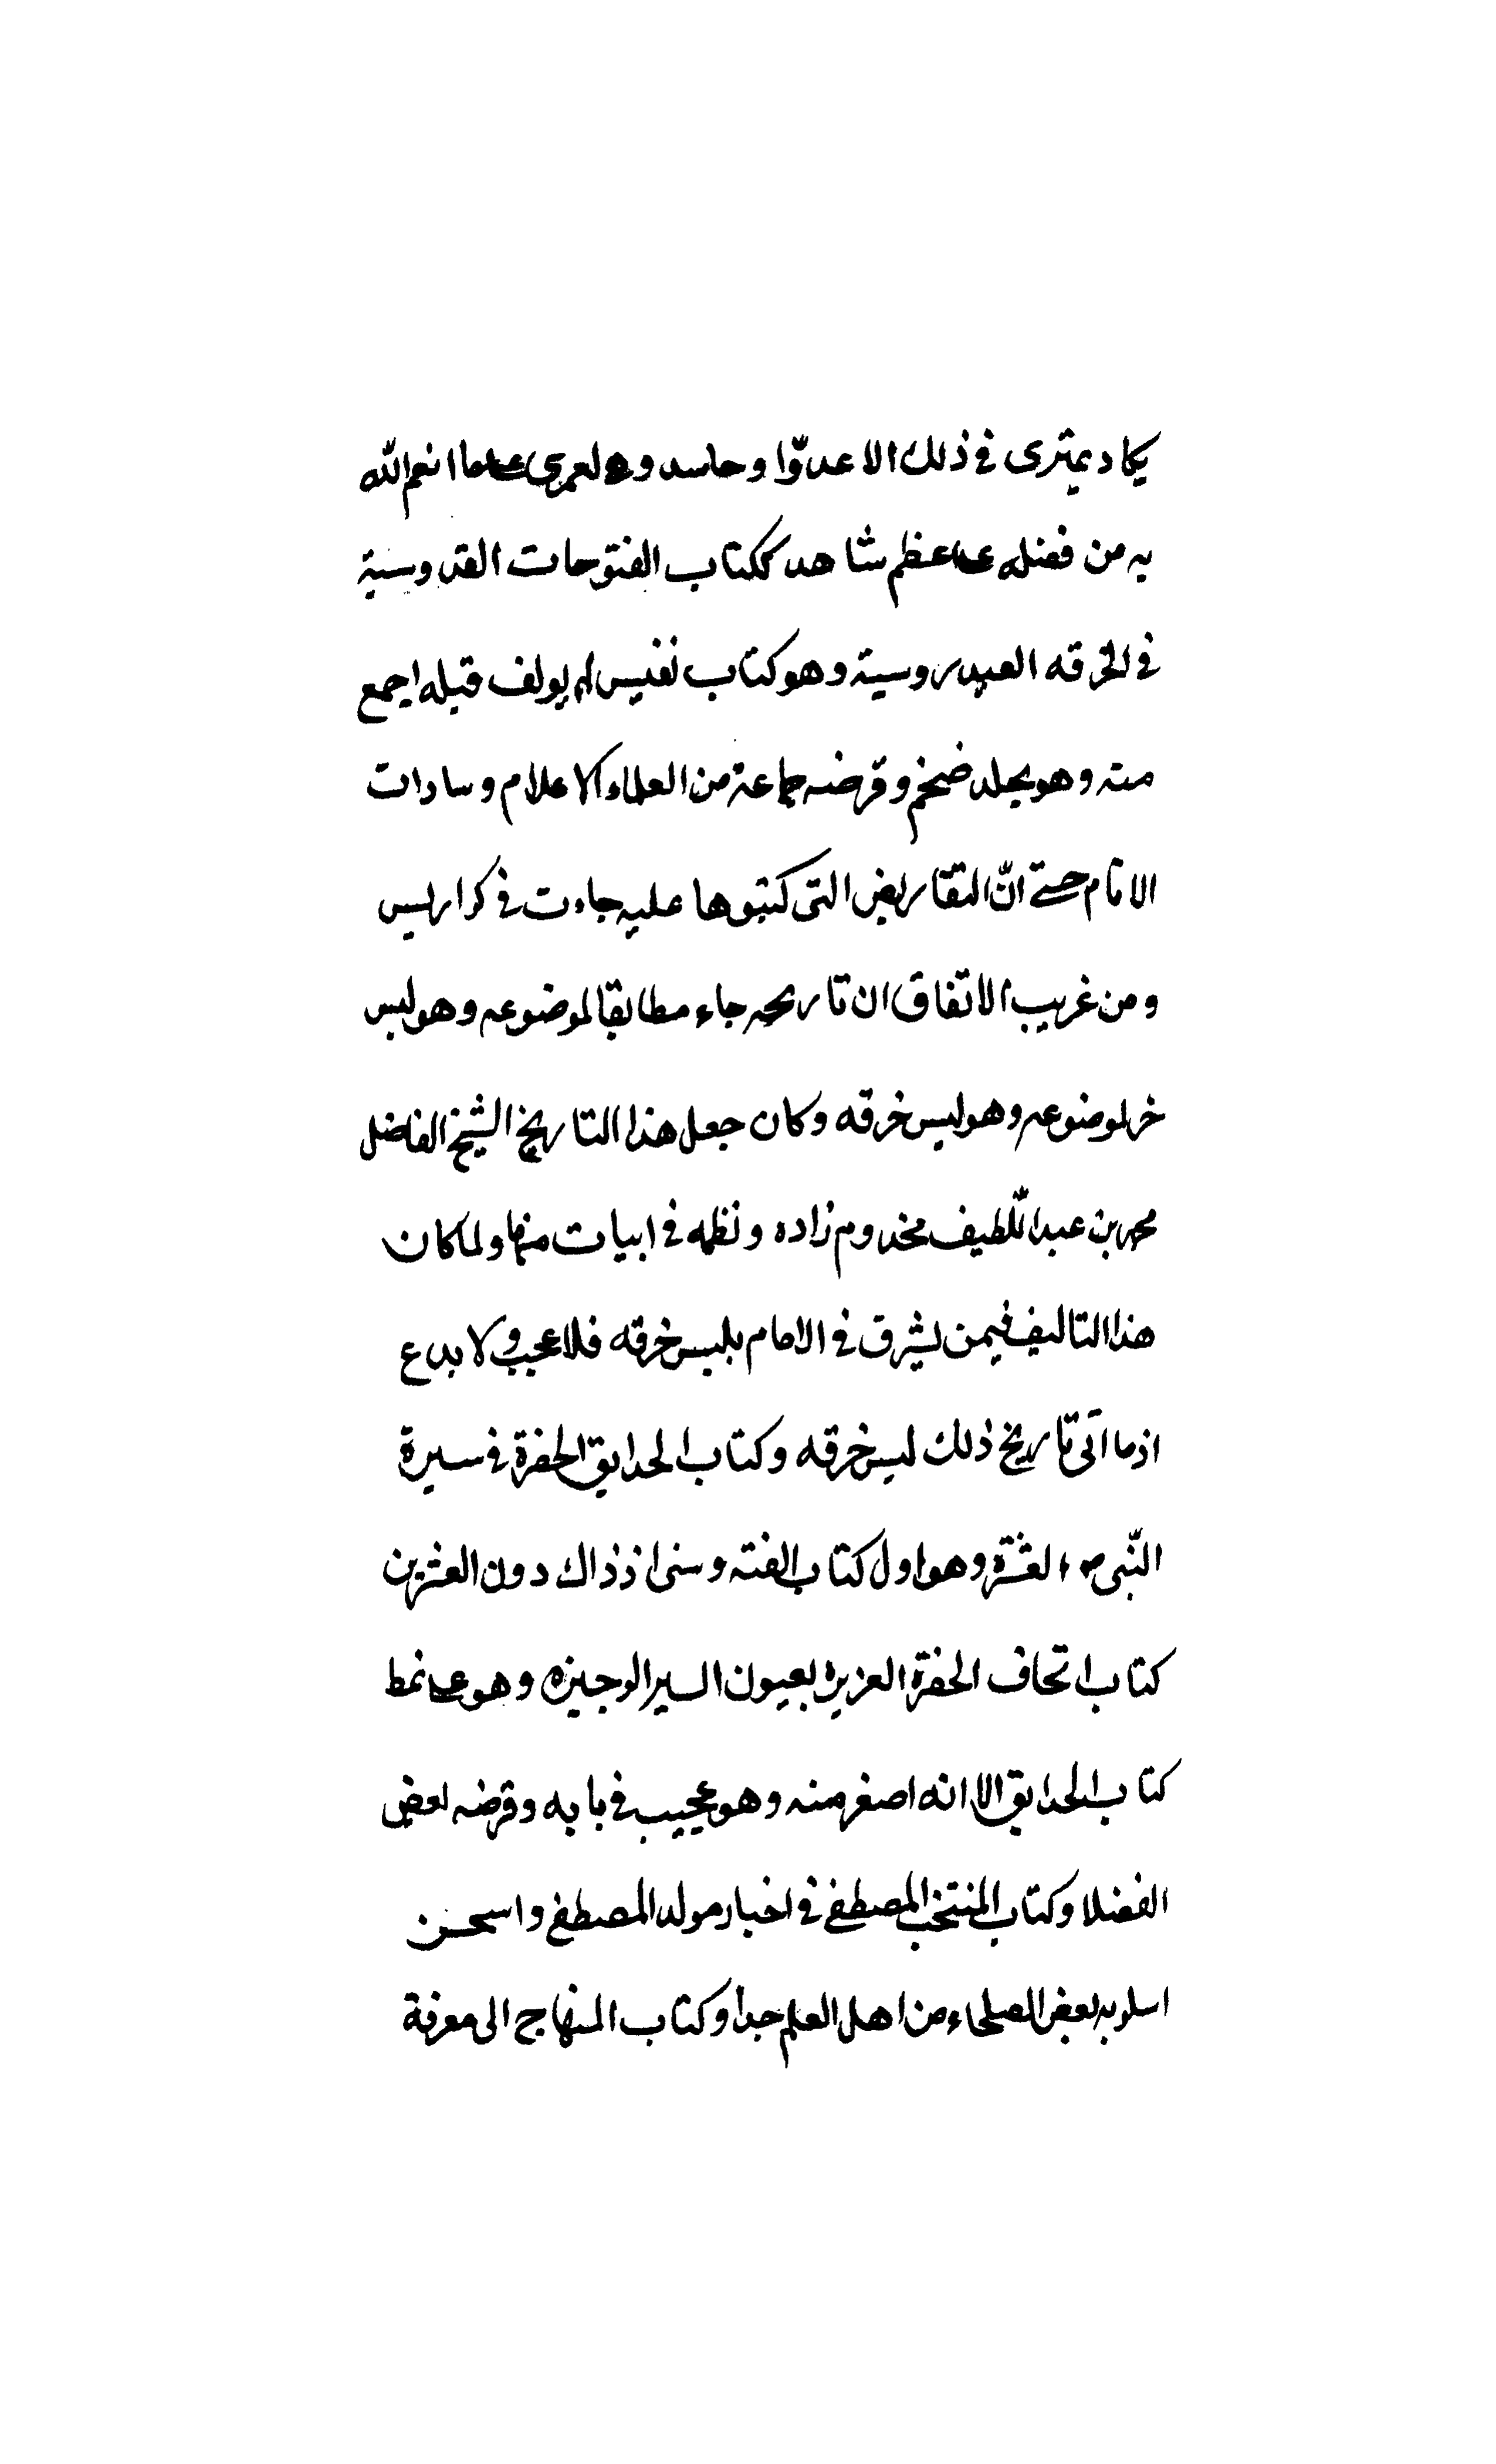 يكاد يمترى فى ذلك الا عدوّا وحاسد وهو لعمرى على ما انعم الله
به من فضله على عظم شاهد ككتاب الفتوحات القدوسية
فى الخرقه العيدروسية وهو كتاب نفيس لم يولف قبله اجمع
منه وهو مجلد ضخم وقرضه جماعة من العلماء الاعلام وسادات
الانام حتى انّ التقاريض التى كتبوها عليه جاءت فى كراريس
ومن غريب الاتفاق ان تاريخه جاء مطابقا لموضوعه وهو لبس
خر لموضوعه وهو لبس خرقه وكان جعل هذا التاريخ الشيخ الفاضل
محمد بن عبد اللّطيف مخدوم زاده ونظمه فى ابيات منها ولما كان
هذا التاليف فيمن تشرق فى الامام بلبس خرقه فلا عجيب ولا بدع
اذ ما اتى تاريخ ذلك لبس خرقه وكتاب الحدايق الخضرة فى سيرة
النّبى ص العشرة وهو اول كتاب الفته وسنى اذ ذاك دون العشرين
كتاب اتحاف الحضرة العزيزه بعيون السير الوجيزه وهو على نمط
كتاب الحدايق الا انه اصغر منه وهو عجيب فى بابه وقرضه بعض
الفضلا وكتاب المنتخب المصطفى فى اخبار مولد المصطفى واسحسن
اسلوبه بعض الصلحاء من اهل العلم جدا وكتاب المنهاج الى معرفة